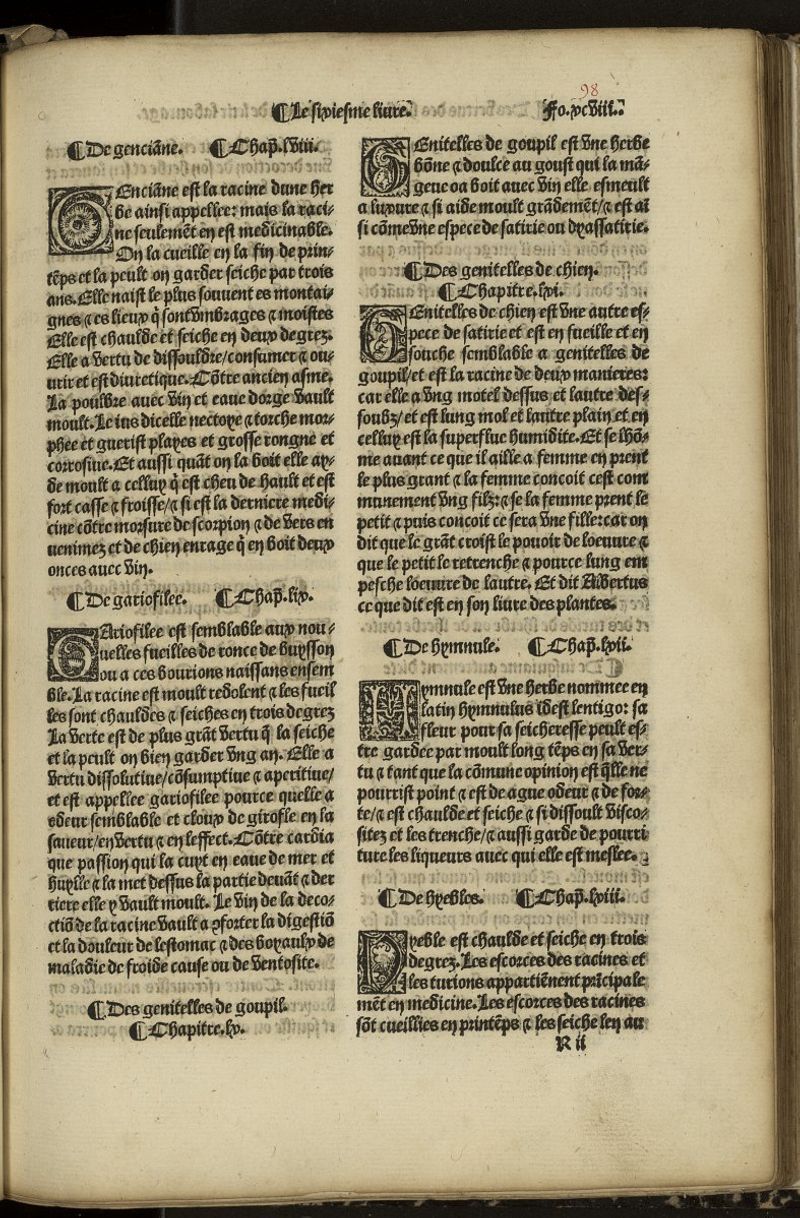 98
¶Le sixiesme liure. Fo.xcviii.
¶De genciāne. ¶Chap̄.lviii.
GEnciāne est la racine dune her
be ainsi appellee: mais la raci⸗
ne seulemēt en est medicinable.
On la cueille en la fin de prin⸗
tēps et la peult on garder seiche par trois
ans. Elle naist le plus souuent es montai⸗
gnes ⁊ es lieux q̄ sont vmbrages ⁊ moistes
Elle est chaulde et seiche en deux degrez.
Elle a vertu de dissouldre/consumer ⁊ ou⸗
urir et est diuretique. Cōtre ancien asme.
La pouldre auec vin et eaue dorge vault
moult. Le ius dicelle nectoye ⁊ torche mor⸗
phee et guerist playes et grosse rongne et
corrosiue. Et aussi quāt on la boit elle ay⸗
de moult a celluy q̄ est cheu de hault et est
fort casse ⁊ froisse/⁊ si est la derniere medi⸗
cine cōtre morsure de scorpion ⁊ de vers en
uenimez et de chien enrage q̄ en boit deux
onces auec vin.
¶De gariofilee. ¶Chap̄.lix.
GAriofilee est semblable aux nou⸗
uelles fueilles de ronce de buysson
ou a ces bourions naissans ensem
ble. La racine est moult redolent ⁊ les fueil
les sont chauldes ⁊ seiches en trois degrez
La verte est de plus grāt vertu q̄ la seiche
et la peult on bien garder vng an. Elle a
vertu dissolutiue/cōsumptiue ⁊ aperitiue/
et est appellee gariofilee pource quelle a
odeur semblable et cloux de girofle en la
saueur/en vertu ⁊ en leffect. Cōtre cardia
que passion qui la cuyt en eaue de mer et
huylle ⁊ la met dessus la partie deuāt ⁊ der
riere elle y vault moult. Le vin de la deco⸗
ctiō de la racine vault a ꝯforter la digestiō
et la douleur de lestomac ⁊ des boyaulx de
maladie de froide cause ou de ventosite.
¶Des genitelles de goupil.
¶Chapitre.lx.
GEnitelles de goupil est vne herbe
bōne ⁊ doulce au goust qui la mā⸗
geue oa boit auec vin elle esmeult
a luxure ⁊ si aide moult grādemēt/⁊ est aī
si cōme vne espece de satirie ou dyassatirie.
¶Des genitelles de chien.
¶Chapitre.lxi.
GEnitelles de chien est vne autre es⸗
pece de satirie et est en fueille et en
souche semblable a genitelles de
goupil/et est la racine de deux manieres:
car elle a vng motel dessus et lautre des⸗
soubz/et est lung mol et lautre plain et en
celluy est la superflue humidite. Et se lhō⸗
me auant ce que il aille a femme en prent
le plus grant ⁊ la femme concoit cest com
munement vng filz: ⁊ se la femme prent le
petit ⁊ puis concoit ce sera vne fille: car on
dit que le grāt croist le pouoir de loeuure ⁊
que le petit le retrenche ⁊ pource lung em
pesche loeuure de lautre. Et dit Albertus
ce que dit est en son liure des plantes.
¶De hymnule. ¶Chap̄.lxii.
Hymnule est vne herbe nommee en
latin hymnulus idest lentigo: sa
fleur pour sa seicheresse peult es⸗
tre gardee par moult long tēps en sa ver⸗
tu ⁊ tant que la cōmune opinion est q̄lle ne
pourrist point ⁊ est de ague odeur ⁊ de for⸗
te/⁊ est chaulde et seiche ⁊ si dissoult visco⸗
sitez et les trenche/⁊ aussi garde de pourri
ture les liqueurs auec qui elle est meslee.
¶De hyebles. ¶Chap̄.lxiii.
Hyeble est chaulde et seiche en trois
degrez. Les escorces des racines et
les turions appartiēnent prīcipale
mēt en medicine. Les escorces des racines
sōt cueillies en printēps ⁊ les seiche len au
R ii